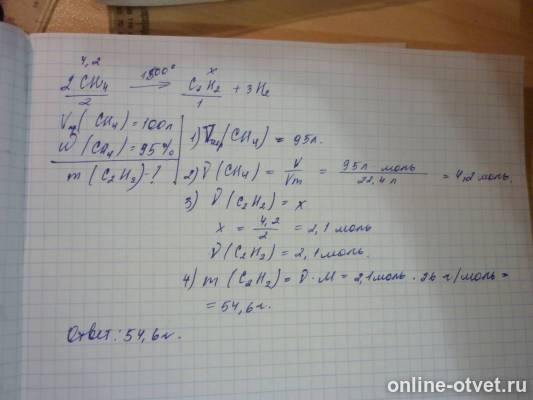 4,2 x
2CH4 1500° C2H2 + 3H2
2 1
Vпр(CH4) = 100л
W(CH4) = 95%
m(C2H2) - ?
1) Vчис(CH4) = 95л.
2) ν(CH4) = V/Vm = 95л моль/22,4л = 4,2 моль.
3) ν(C2H2) = x
x = 4,2/2 = 2,1 моль
ν(C2H2) = 2,1 моль.
4) m(C2H2) = ν·M = 2,1 моль · 26 г/моль =
= 54,6 г.
Ответ: 54,6 г.
online-otvet.ru